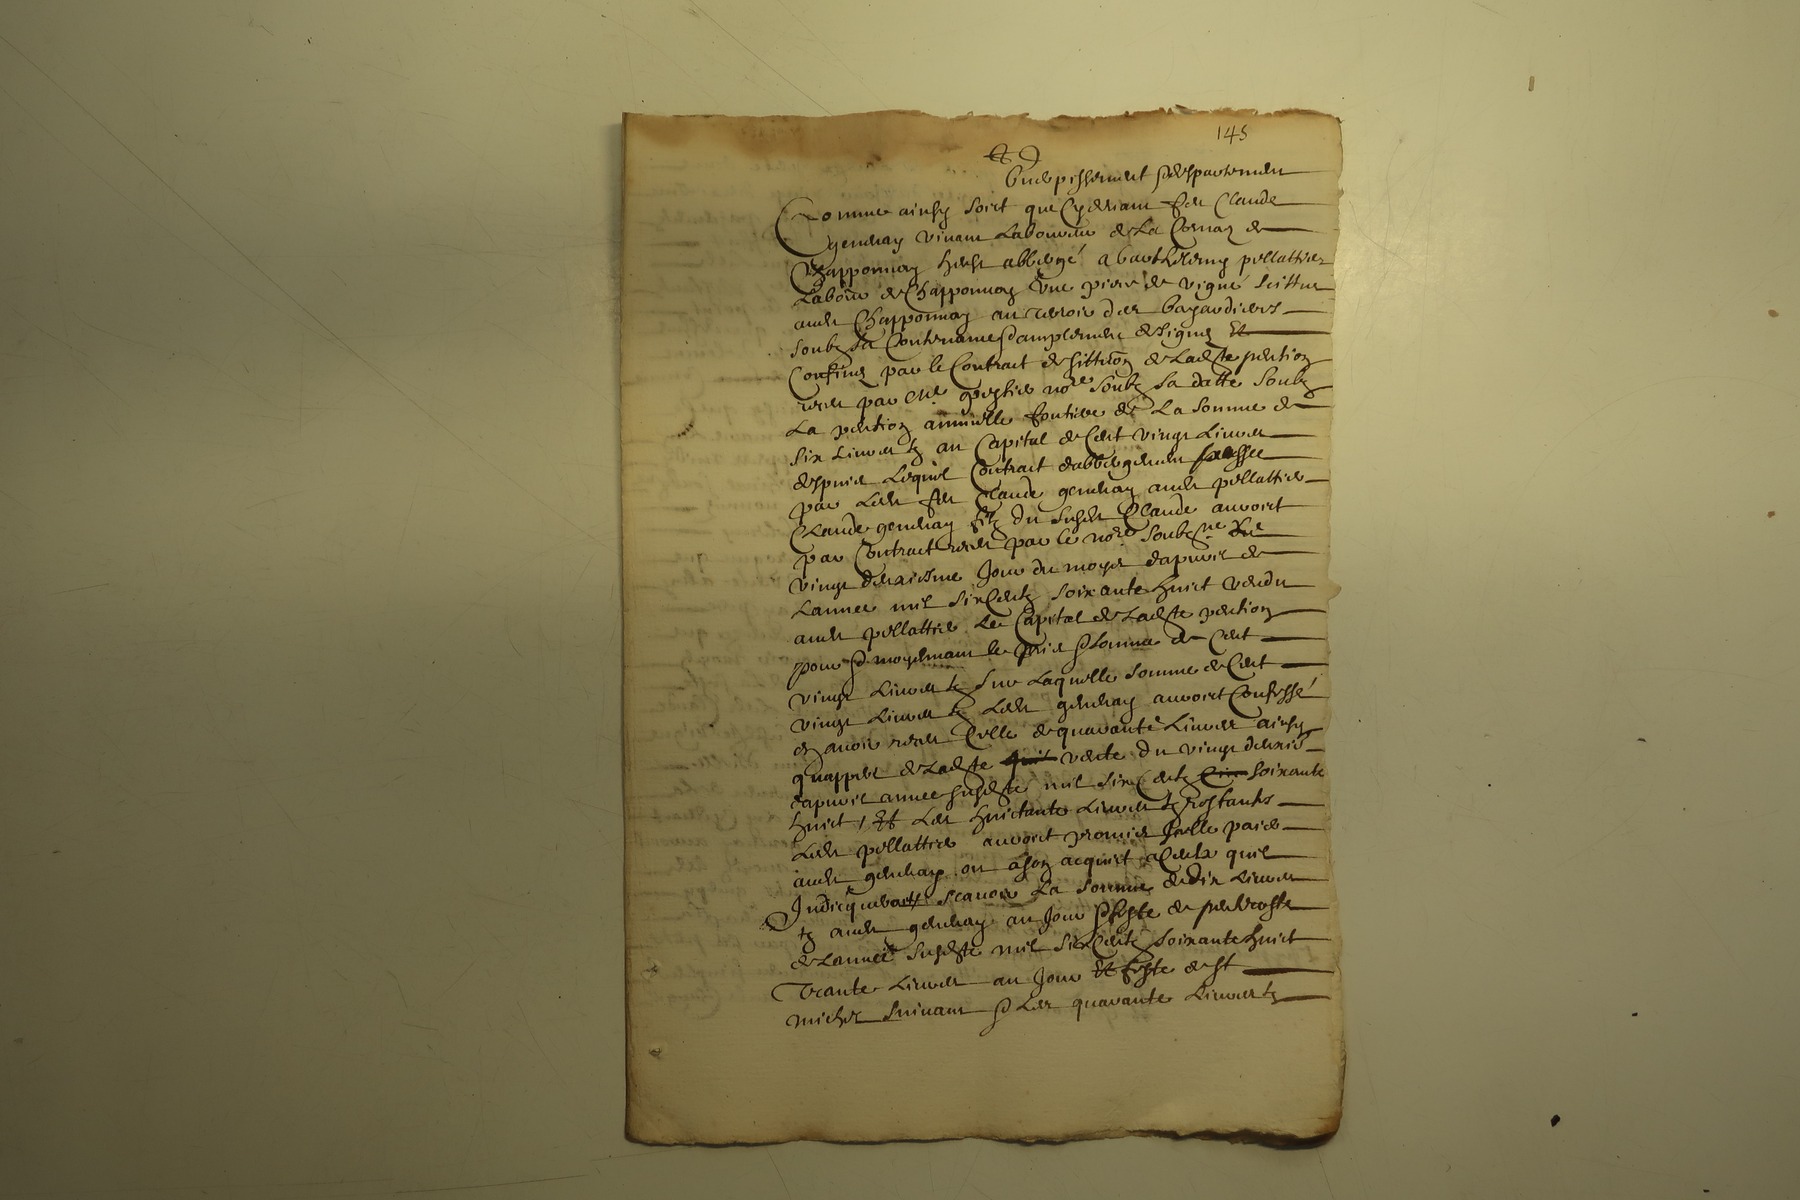 145
Guerpissement & despartement
Comme ainsy soict que Cydevant feu Claude
gendray vivant Laboureur de La Comag de
Chapponnay heust abbergé a barthelemy pellattier
Labour de Chapponnay Une piece de vigne scittue
audt Chapponnay au terroir des
soubz sa Contenance & amplement designé Et
Confiné par le Contrat de Ladte pention
receu par me nore soubz sa datte Soubz
La pention annuelle fontiere de La somme de
six Livres tz au Capital de Cent vingt Livres
despuis Lequel Contrat dabbergement passee
par Ledt feu Claude gendray audt pellattier
Claude gendray filz du susdt Claude auroict
par Contract receu par le nore soubzne Le
vingt deuxiesme Jour du moys dapvril de
Lannee mil six Centz soixante huict vendu
audt pellattier Le Capital de Ladte pention
pour & moyenant le prix & somme de Cent
vingt Livres tz sur Laquelle somme de Cent
vingt Livres tz Ledt gendray auroict Confessé
en avoir receu Celle de quarante Livres ainsy
quappert de Ladte vente du vingt deuxie
dapvril annee susdte mil six Centz soixante
huict, Et Les huictante Livres tz restants
Ledt pellattier auroict promis Icelle paier
audt gendray ou a son acquict a Ceulx quil
Indicqueroict scavoir La somme de dix Livres
tz audt gendray au Jour & feste de penthecoste
de Lannee susdte mil six Centz soixante huict
Trante Livres au Jour Et feste de St
michel suivant & Les quarante Livres tz